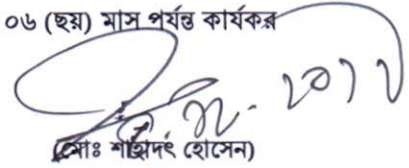 ০৬ (ছয়) মাস পর্যন্ত কার্যকর
(মোঃ শাহাদৎ হোসেন)